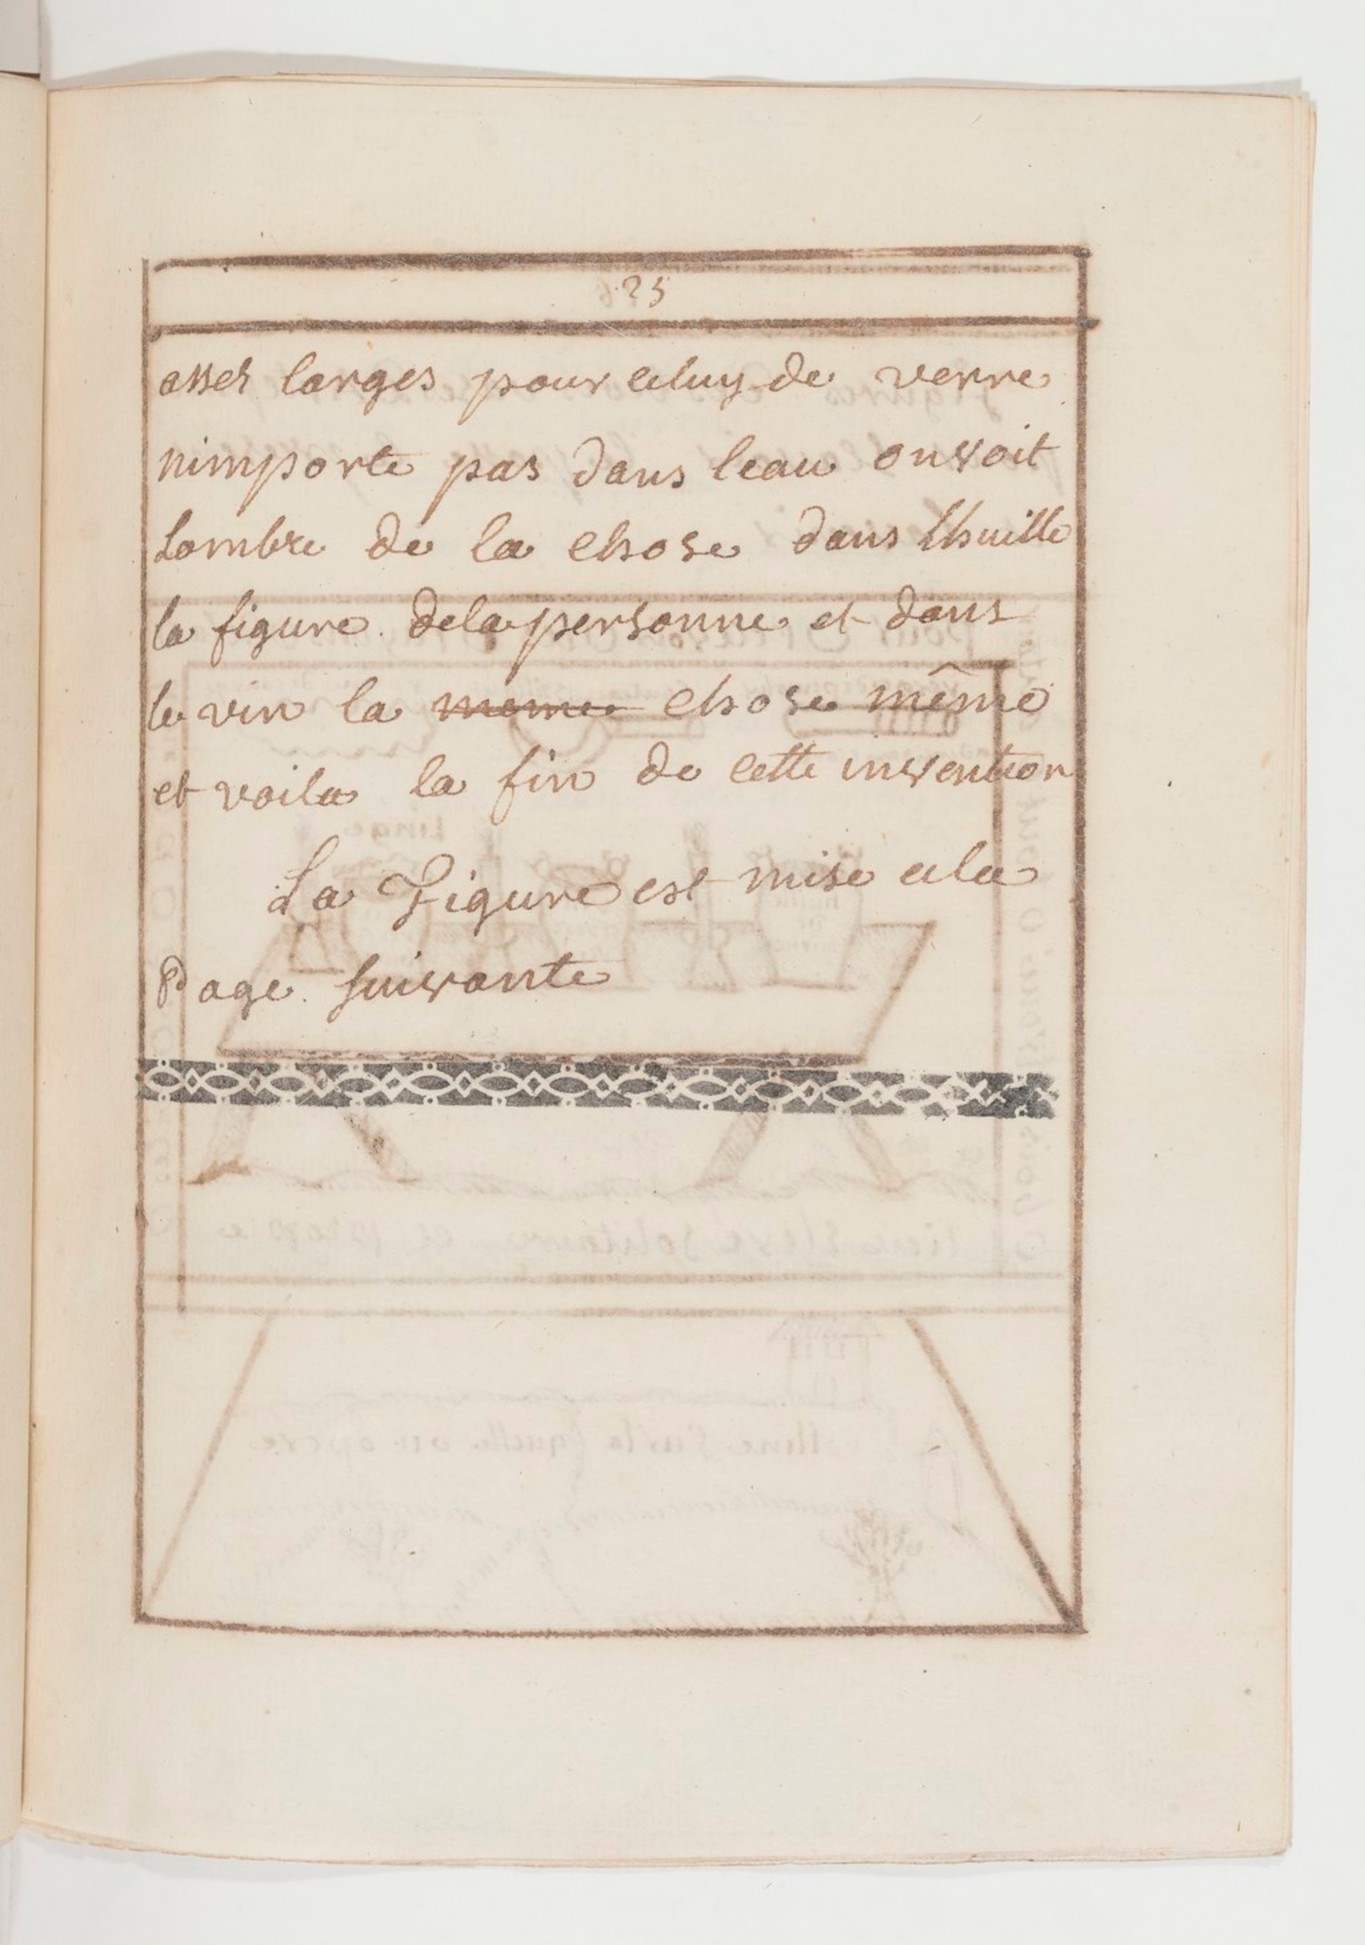 25
asses larges pour celuy de verre
nimporte pas dans leau on voit
Lombre de la chose dans lhuille
la figure dela personne et dans
le vin la meme chose même
et voila la fin de cette invention
La Figure est mise a la
Page suivante